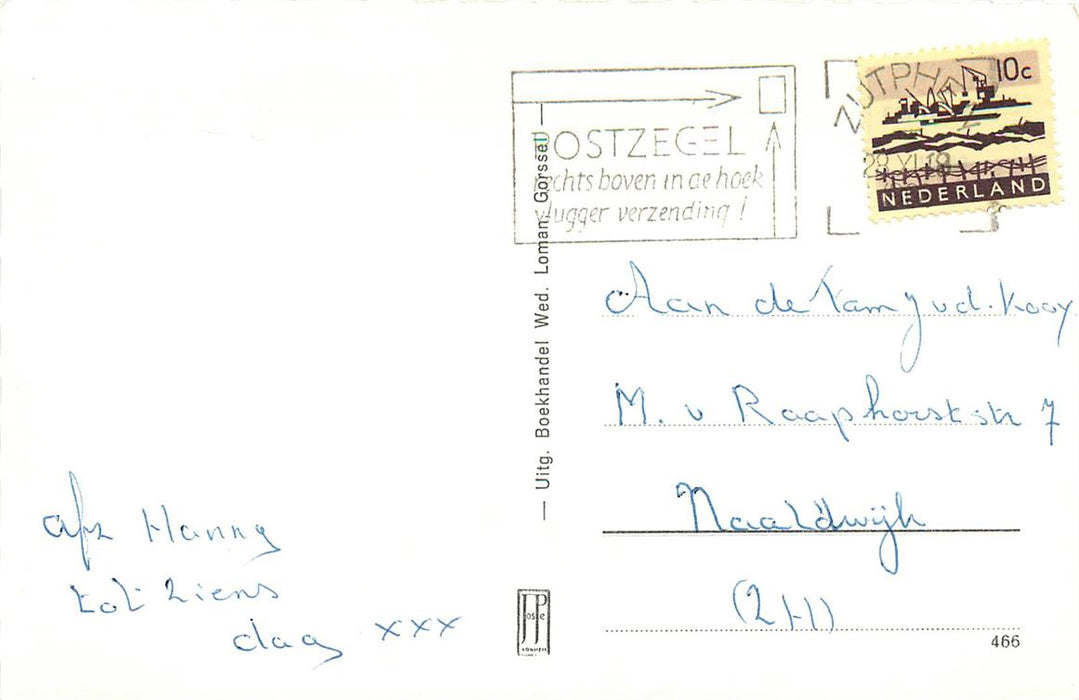 POSTZEGEL
rechts boven in de hoek
vlugger verzending!
ZUTPHEN
10c
NEDERLAND
— Uitg. Boekhandel Wed. Loman, Gorssel —
Aan de Fam J v.d. Kooy
M. v Raaphorststr 7
Naaldwijk
(ZH)
afz Hanny
tot ziens
daag xxx
JP
466